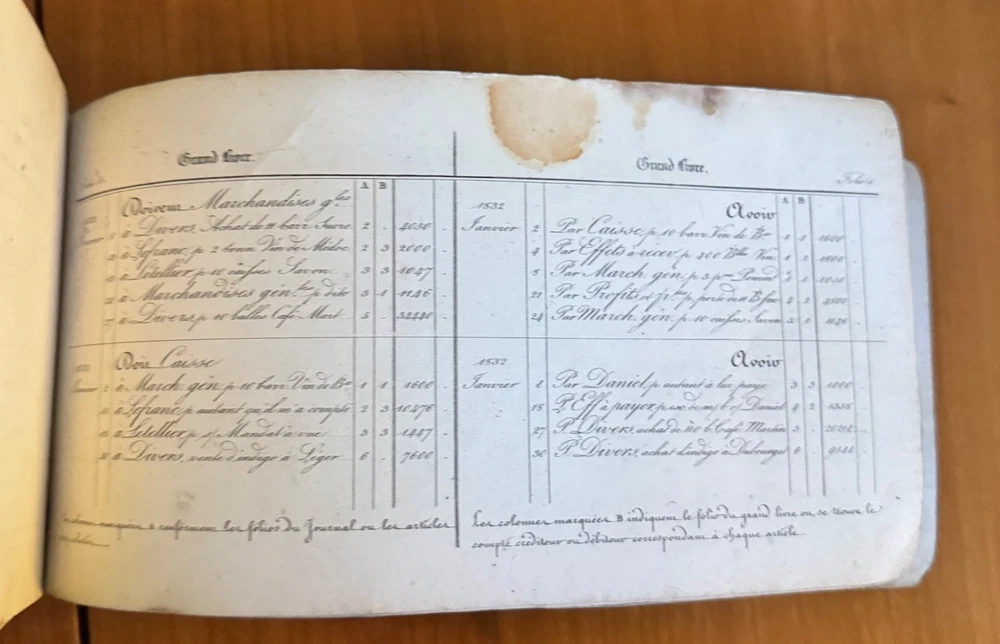 Grand Livre.
A B
Doivent Marchandises g.les
à Divers, Achat de 11 barr. Sucre 2 . 4050 .
à Lefranc, p. 2 tonn. Vin de Médoc 2 3 2000 .
à Letellier, p. 10 caisses Savon 3 3 1047 .
à Marchandises gén.les p. dito 3 1 1146 .
à Divers, p. 10 balles Café Mart. 5 . 32440 .
Doit Caisse
à March. gén. p. 10 barr. Vin de B.x 1 1 1600 .
à Lefranc, p. autant qu'il m'a compté 2 3 10476 .
à Letellier, p. s/ Mandat à vue 3 3 1447 .
à Divers, vente d'indigo à Léger 6 . 7600 .
colonnes marquées a renferment les folios du Journal ou les articles
Grand Livre.
Folio
A B
1832 Avoir
Janvier 2 Par Caisse, p. 10 barr. Vin de B.x 1 1 1600 .
4 Par Effets à recev. p. 400 B.lles Vin 1 2 1600 .
5 Par March. gén. p. 3 1 1 1050 .
21 Par Profits et p. perte de 11 B. suc. 2
24 Par March. gén. p. 10 caisses Savon 3 1 1146 .
1832 Avoir
Janvier 8 Par Daniel, p. autant à lui payé 3 3 1000 .
15 P. Eff. à payer, p. esc. de m/ b. o/ Daniel 4 2
27 P. Divers, achat de b. Café Martin 5 .
30 P. Divers, achat d'indigo à Dubourget 6 .
Les colonnes marquées B indiquent le folio du grand livre ou se trouve le
compte créditeur ou débiteur correspondant à chaque article.